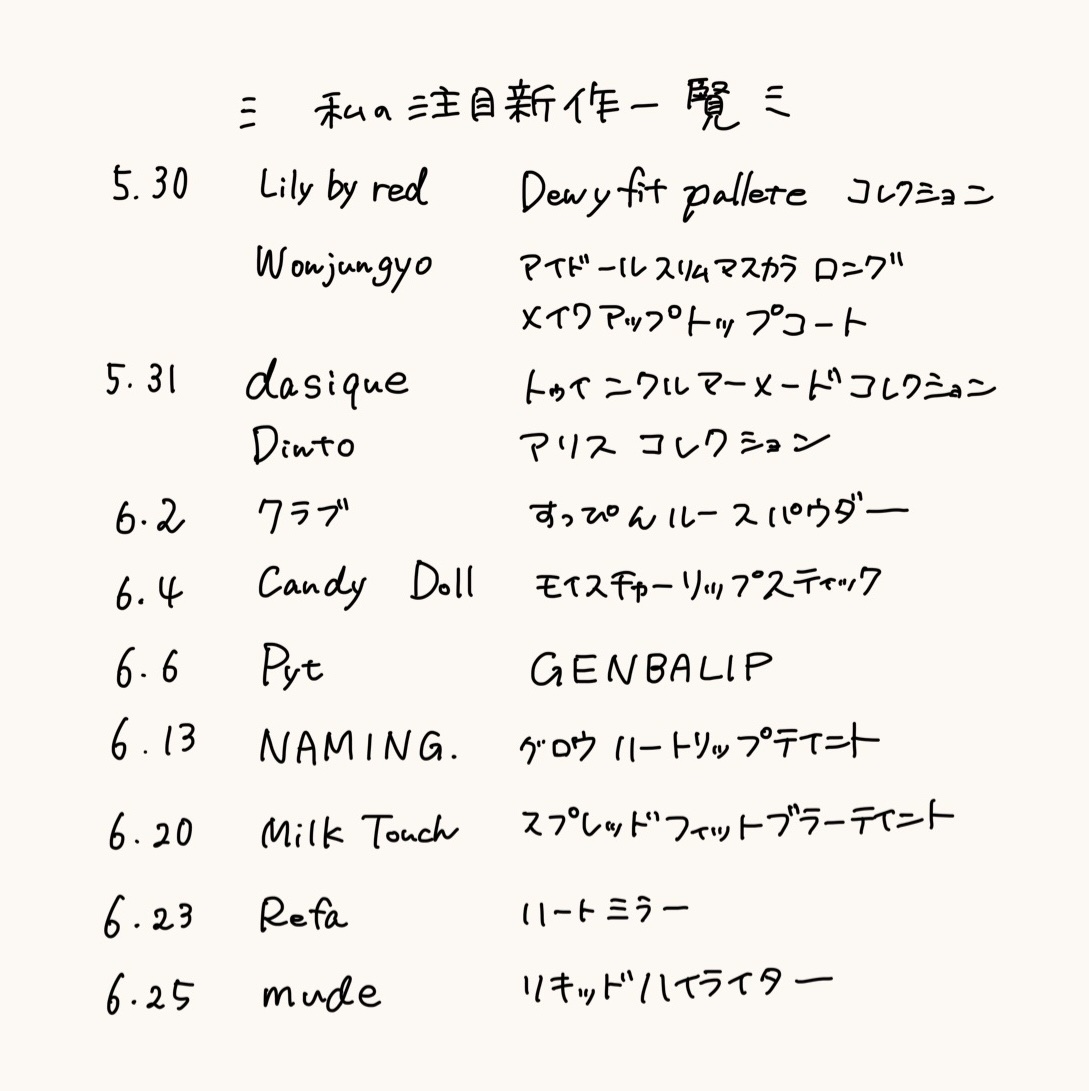 ミ 私の注目新作一覧 ミ
5.30 Lily by red Dewy fit pallete コレクション
Wonjungyo アイドールスリムマスカラ ロング
メイクアップトップコート
5.31 dasique トゥインクルマーメードコレクション
Dinto アリス コレクション
6.2 クラブ すっぴんルースパウダー
6.4 Candy Doll モイスチャーリップスティック
6.6 Pyt GENBALIP
6.13 NAMING. グロウハートリップティント
6.20 Milk Touch スプレッドフィットブラーティント
6.23 Refa ハートミラー
6.25 mude リキッドハイライター